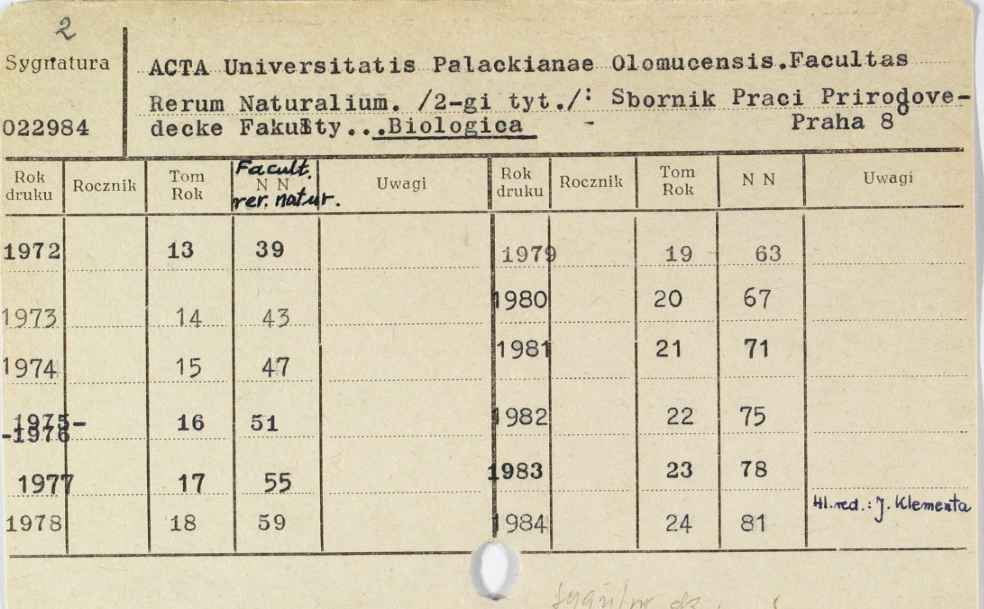 2
Sygnatura
ACTA Universitatis Palackianae Olomucensis.Facultas
Rerum Naturalium. /2-gi tyt./: Sbornik Praci Prirodove-
022984 decke Fakulty...Biologica - Praha 8°
Rok druku Rocznik Tom Rok Facult. N N rer. natur. Uwagi Rok druku Rocznik Tom Rok N N Uwagi
1972 13 39 1979 19 63
1973 14 43 1980 20 67
1974 15 47 1981 21 71
1975-
-1976 16 51 1982 22 75
1977 17 55 1983 23 78
1978 18 59 1984 24 81 Hl. red.: J. Klementa